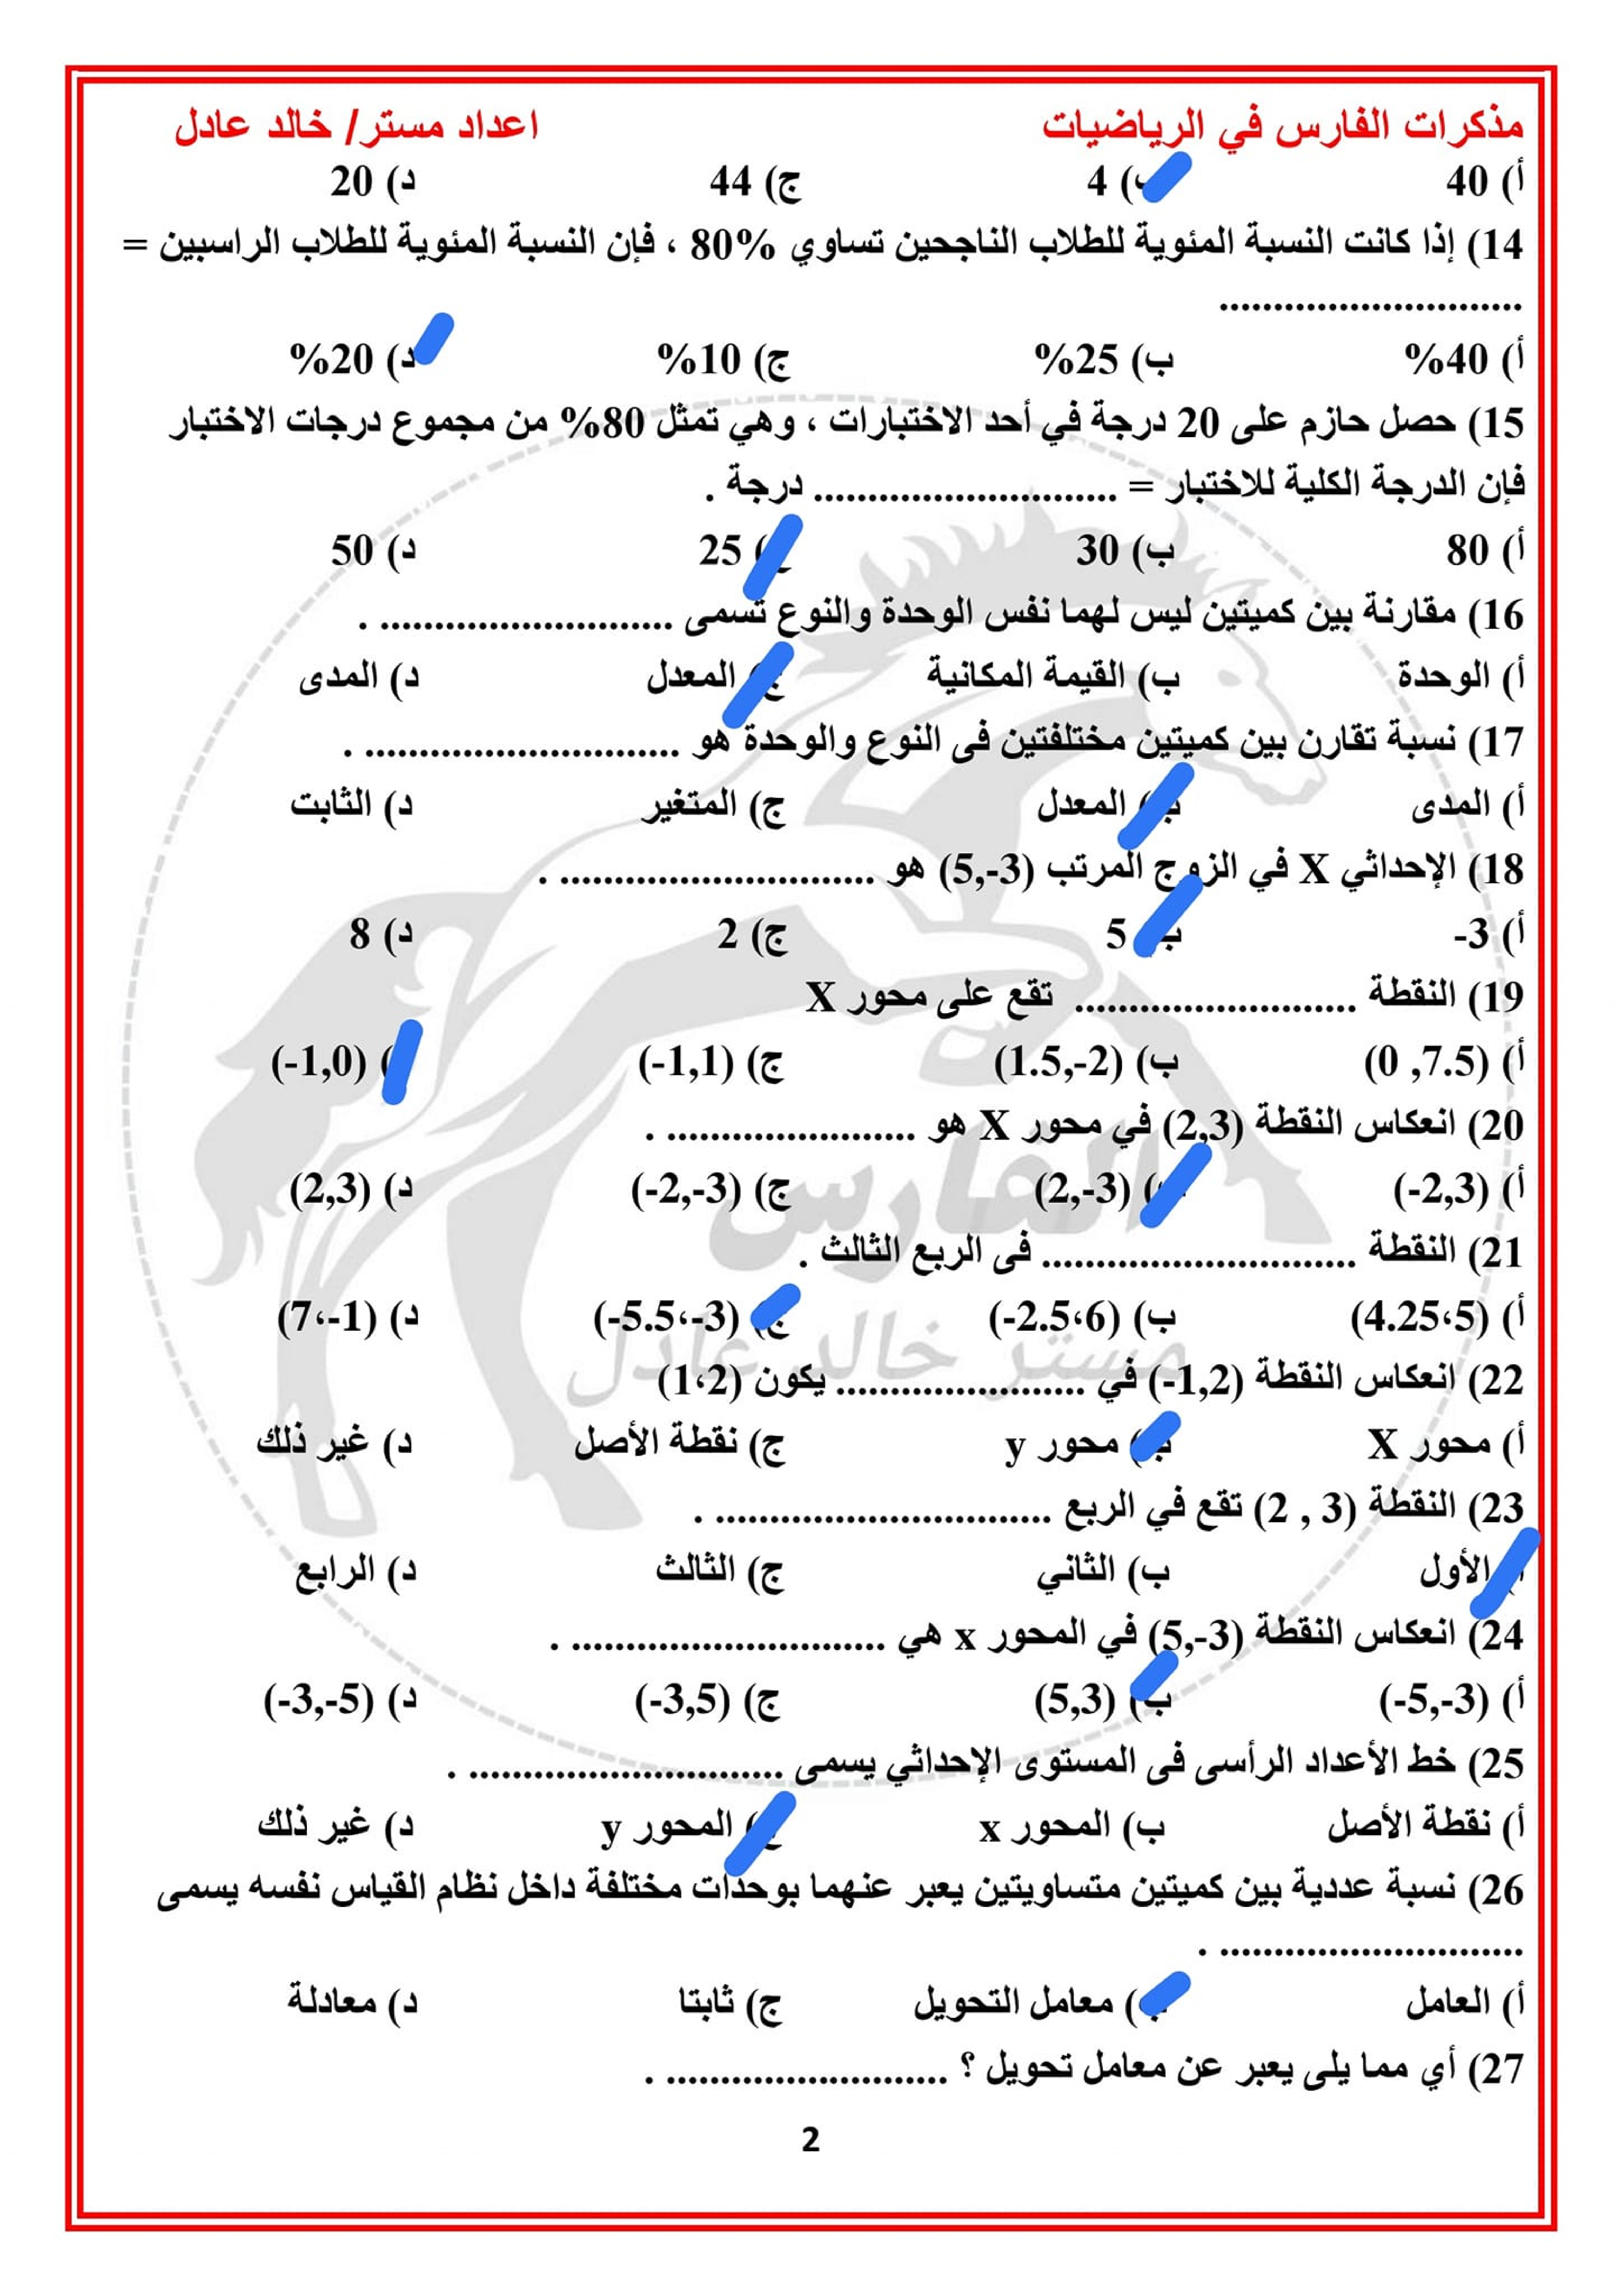 مذكرات الفارس في الرياضيات اعداد مستر/ خالد عادل
أ) 40 ب) 4 ج) 44 د) 20
14) إذا كانت النسبة المئوية للطلاب الناجحين تساوي 80% ، فإن النسبة المئوية للطلاب الراسبين =
............................
أ) 40% ب) 25% ج) 10% د) 20%
15) حصل حازم على 20 درجة في أحد الاختبارات ، وهي تمثل 80% من مجموع درجات الاختبار
فإن الدرجة الكلية للاختبار = ............................ درجة .
أ) 80 ب) 30 ج) 25 د) 50
16) مقارنة بين كميتين ليس لهما نفس الوحدة والنوع تسمى ........................... .
أ) الوحدة ب) القيمة المكانية ج) المعدل د) المدى
17) نسبة تقارن بين كميتين مختلفتين فى النوع والوحدة هو ............................. .
أ) المدى ب) المعدل ج) المتغير د) الثابت
18) الإحداثي X في الزوج المرتب (5,-3) هو ............................. .
أ) -3 ب) 5 ج) 2 د) 8
19) النقطة .......................... تقع على محور X
أ) (0 ,7.5) ب) (1.5,-2) ج) (-1,1) د) (-1,0)
20) انعكاس النقطة (2,3) في محور X هو ....................... .
أ) (-2,3) ب) (2,-3) ج) (-2,-3) د) (2,3)
21) النقطة ............................. فى الربع الثالث .
أ) (4.25،5) ب) (-2.5،6) ج) (-5.5،-3) د) (7،-1)
22) انعكاس النقطة (-1,2) في ....................... يكون (1،2)
أ) محور X ب) محور y ج) نقطة الأصل د) غير ذلك
23) النقطة (2 , 3) تقع في الربع ............................... .
أ) الأول ب) الثاني ج) الثالث د) الرابع
24) انعكاس النقطة (5,-3) في المحور x هي ............................. .
أ) (-5,-3) ب) (5,3) ج) (-3,5) د) (-3,-5)
25) خط الأعداد الرأسى فى المستوى الإحداثي يسمى ............................. .
أ) نقطة الأصل ب) المحور x ج) المحور y د) غير ذلك
26) نسبة عددية بين كميتين متساويتين يعبر عنهما بوحدات مختلفة داخل نظام القياس نفسه يسمى
............................ .
أ) العامل ب) معامل التحويل ج) ثابتا د) معادلة
27) أي مما يلى يعبر عن معامل تحويل ؟ .......................... .
2
الفارس
مستر خالد عادل